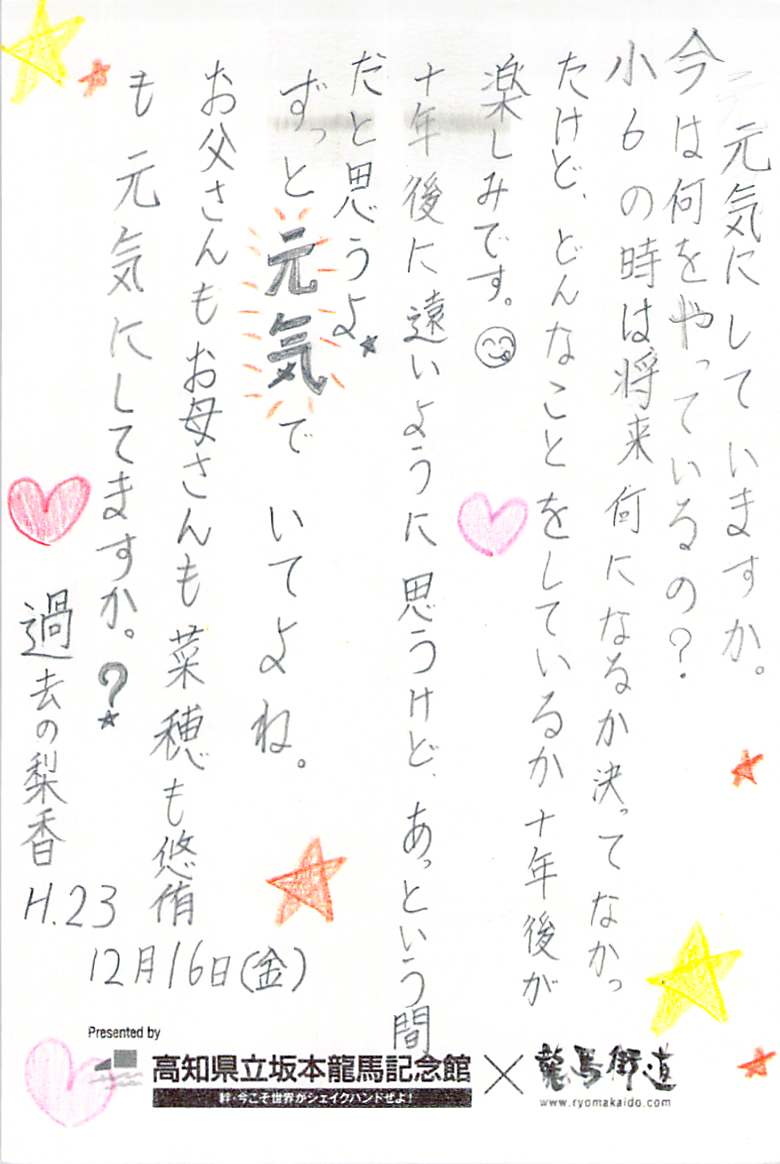 元気にしていますか。
今は何をやっているの?
小6の時は将来何になるか決ってなかっ
たけど、どんなことをしているか十年後が
楽しみです。
十年後に遠いように思うけど、あっという間
だと思うよ
ずっと元気でいてよね。
お父さんもお母さんも菜穂も悠侑
も元気にしてますか。?
過去の梨香
H.23
12月16日(金)
Presented by
高知県立坂本龍馬記念館×龍馬街道
絆・今こそ世界がシェイクハンドぜよ!
www.ryomakaido.com